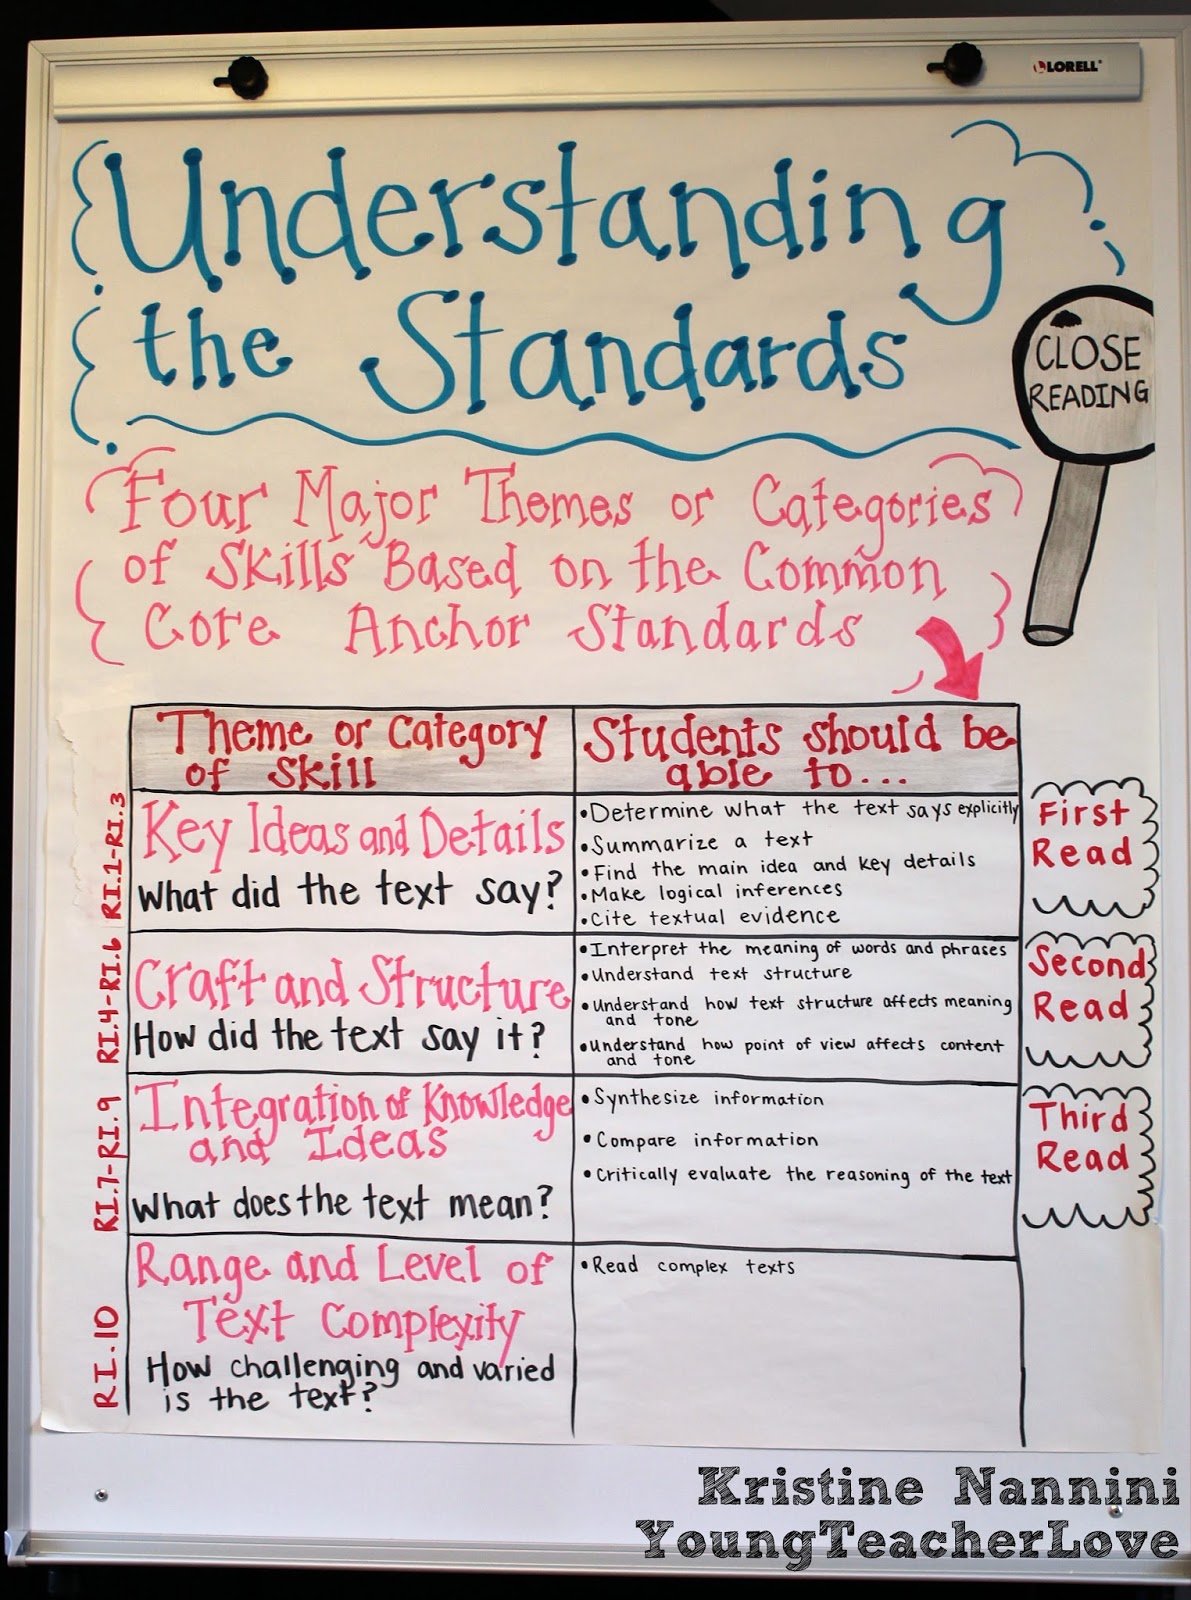 LORELL
Understanding
the Standards
CLOSE
READING
Four Major Themes or Categories
of Skills Based on the Common
Core Anchor Standards
Theme or Category
of Skill
Students should be
able to...
RI.1-RI.3
Key Ideas and Details
What did the text say?
•Determine what the text says explicitly
•Summarize a text
•Find the main idea and key details
•Make logical inferences
•Cite textual evidence
First
Read
RI.4-RI.6
Craft and Structure
How did the text say it?
•Interpret the meaning of words and phrases
•Understand text structure
•Understand how text structure affects meaning
and tone
•Understand how point of view affects content
and tone
Second
Read
RI.7-RI.9
Integration of Knowledge
and Ideas
What does the text mean?
•Synthesize information
•Compare information
•Critically evaluate the reasoning of the text
Third
Read
RI.10
Range and Level of
Text Complexity
How challenging and varied
is the text?
•Read complex texts
Kristine Nannini
YoungTeacherLove